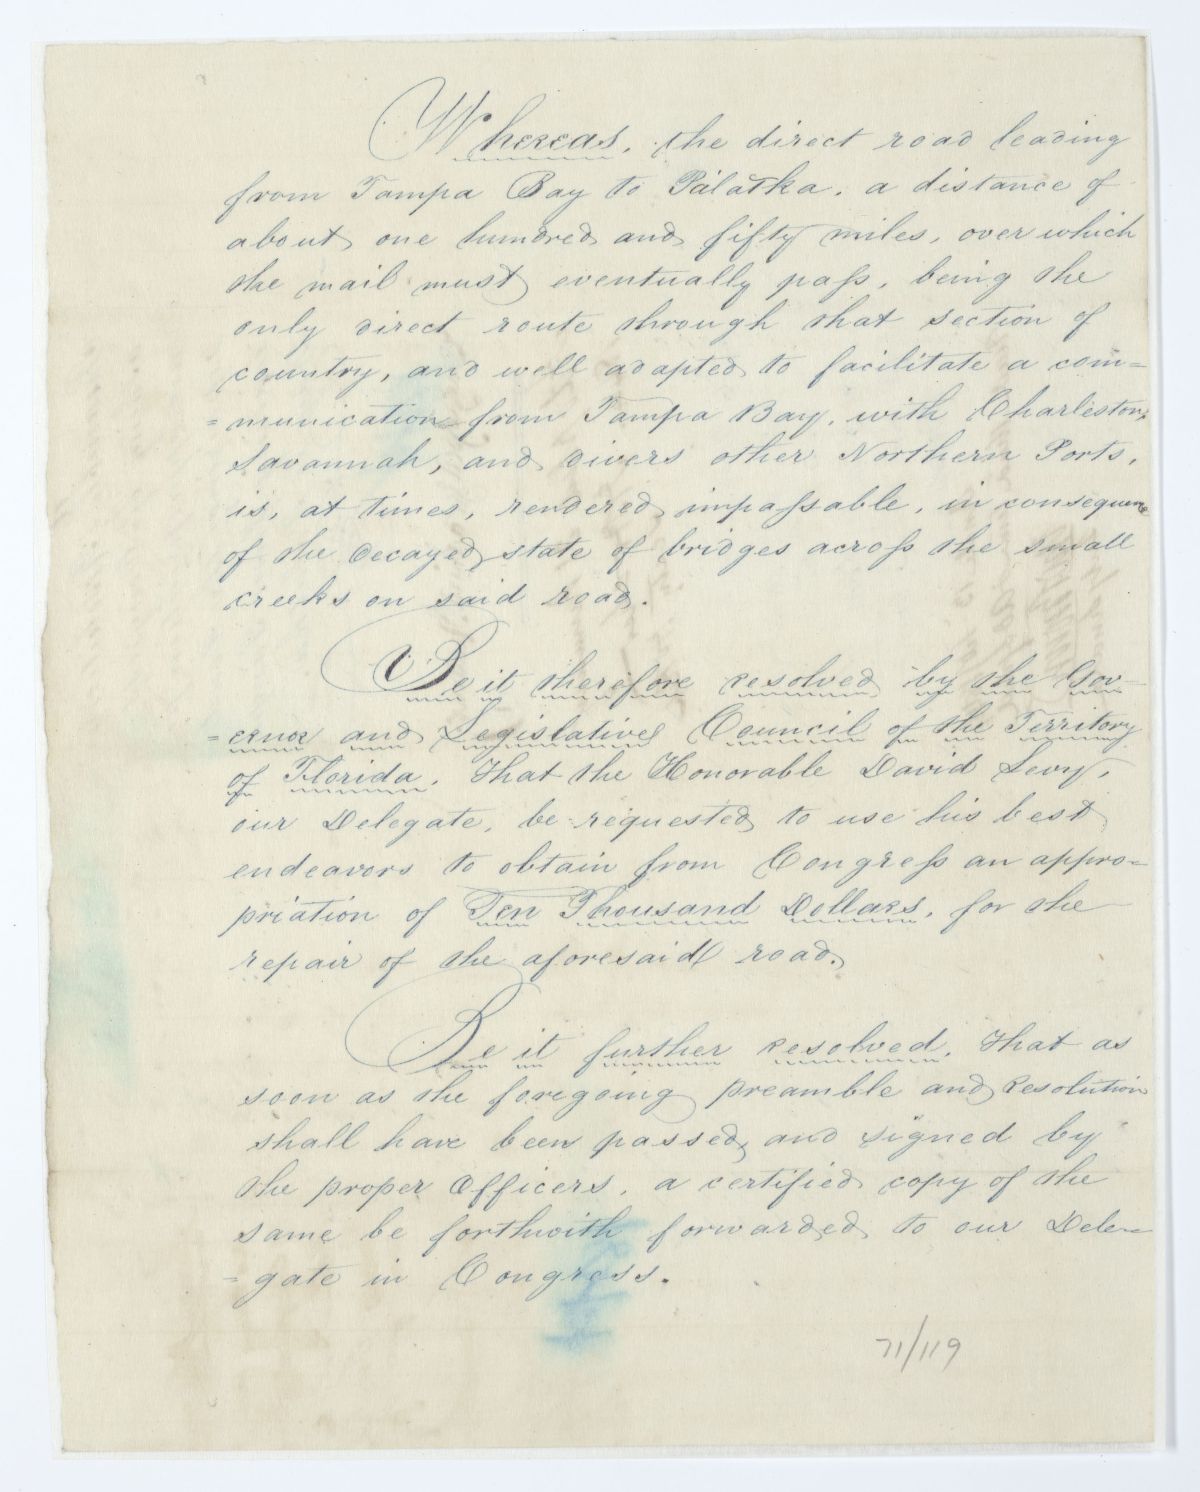 Whereas, the direct road leading
from Tampa Bay to Palatka, a distance of
about one hundred and fifty miles, over which
the mail must eventually paſs, being the
only direct route through that section of
country, and well adapted to facilitate a com=
=munication from Tampa Bay, with Charleston,
Savannah, and divers other Northern Ports,
is, at times, rendered impaſsable, in consequence
of the decayed state of bridges acroſs the small
creeks on said road.
Be it therefore resolved by the Gov-
=ernor and Legislative Council of the Territory
of Florida, That the Honorable David Levy,
our Delegate, be requested to use his best
endeavors to obtain from Congreſs an appro-
priation of Ten Thousand Dollars, for the
repair of the aforesaid road.
Be it further resolved, That as
soon as the foregoing preamble and Resolution
shall have been passed, and signed by
the proper Officers, a certified copy of the
same be forthwith forwarded to our Dele-
=gate in Congress.
71/119